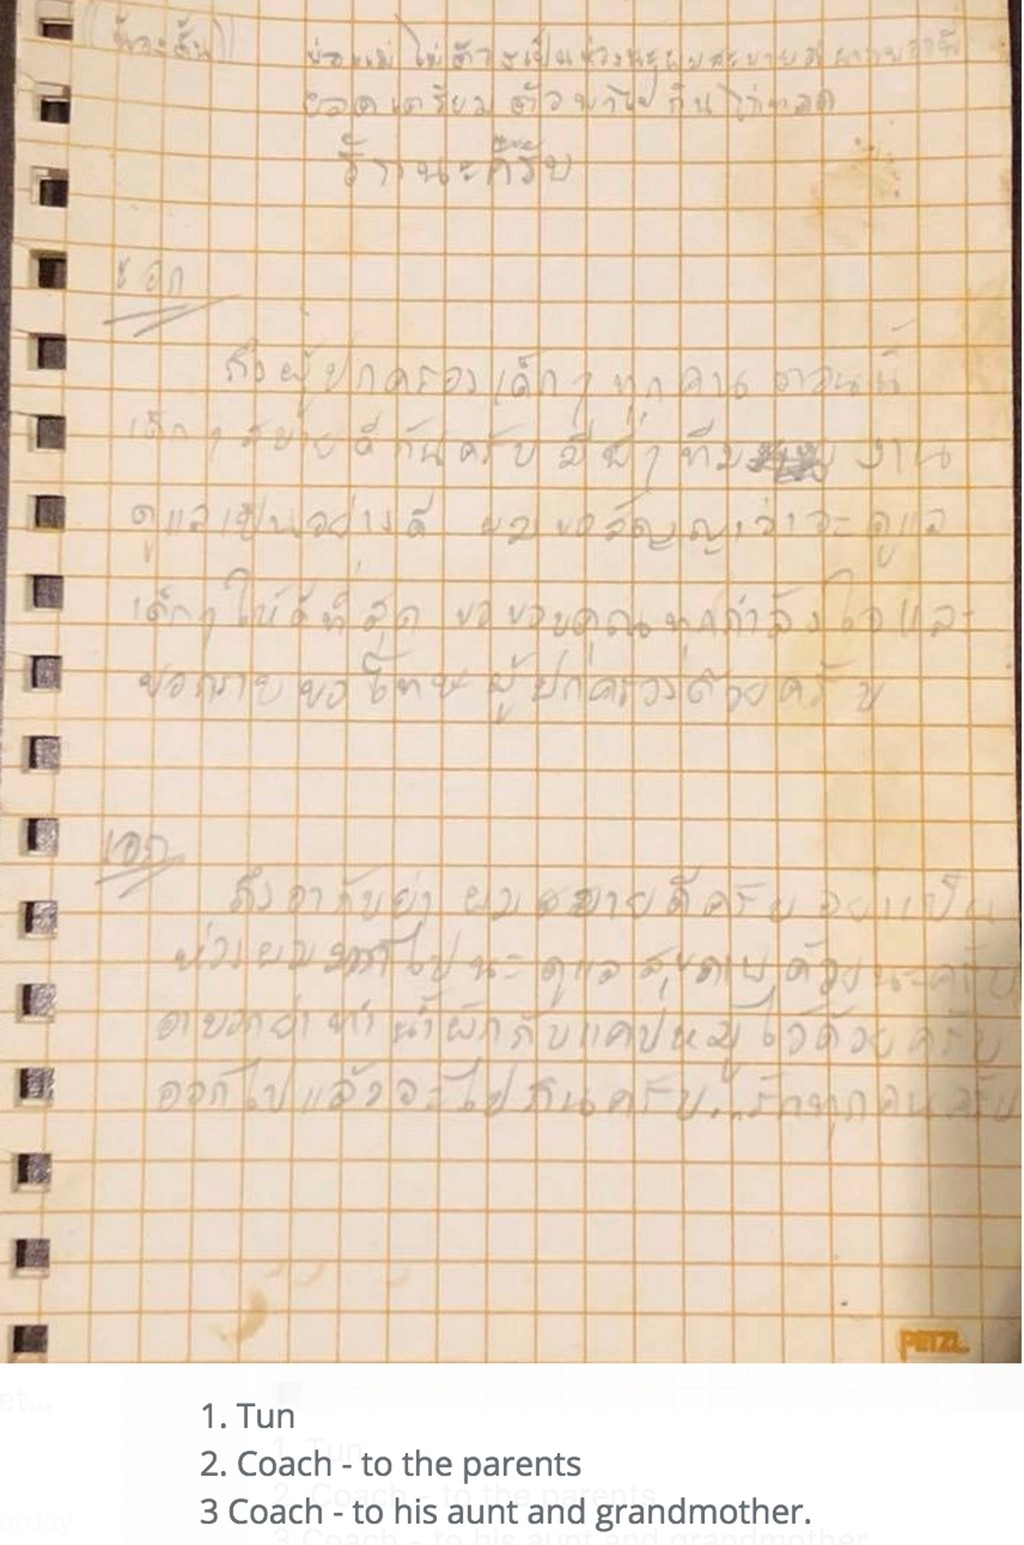 (น้องตั้น) พ่อแม่ ไม่ต้องเป็นห่วงนะผมสบายดี
เตรียมตัวพาไปกินไก่ทอด
ด้วยนะครับ
จาก
ถึงผู้ปกครองเด็กๆ ทุกคน ตอนนี้
เด็กๆ สบายดีกันครับ มีพี่ๆ ทีม งาน
ดูแลเป็นอย่างดี ผมขอสัญญาว่าจะดูแล
เด็กๆ ให้ดีที่สุด ขอขอบคุณทุกกำลังใจและ
ขอกราบขอโทษผู้ปกครองด้วยครับ
เอก
ถึงอากับย่า ผมสบายดีครับ อย่าเป็น
ห่วงผม ไปนะ ดูแลสุขภาพด้วยนะครับ
อาบอกย่าทำน้ำผักกับแคปหมูไว้ด้วยครับ
ออกไปแล้วจะไปกินครับ...รักทุกคนครับ
PETZL
1. Tun
2. Coach - to the parents
3 Coach - to his aunt and grandmother.